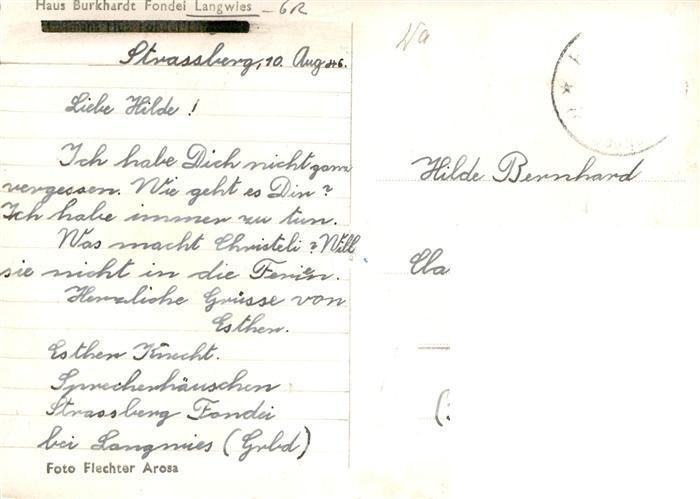 Haus Burkhardt Fondei Langwies - GR
Strassberg, 10. Aug. 46.
Liebe Hilde !
Ich habe Dich nicht ganz
vergessen. Wie geht es Dir?
Ich habe immer zu tun.
Was macht Christeli? Will
sie nicht in die Ferien.
Herzliche Grüsse von
Esther.
Esther Knecht.
Sprecherhäuschen
Strassberg Fondei
bei Langwies (Grbd)
Foto Flechter Arosa
Hilde Bernhard
Cla